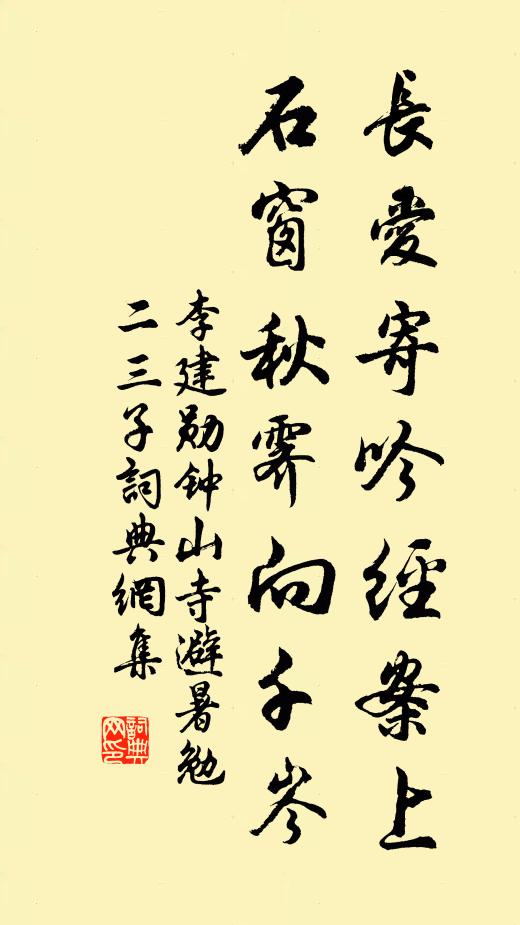 長愛寄吟經案上
石窗秋霽向千岑
李建勋钟山寺避暑勉
二三子詞典網集
詞典
网印